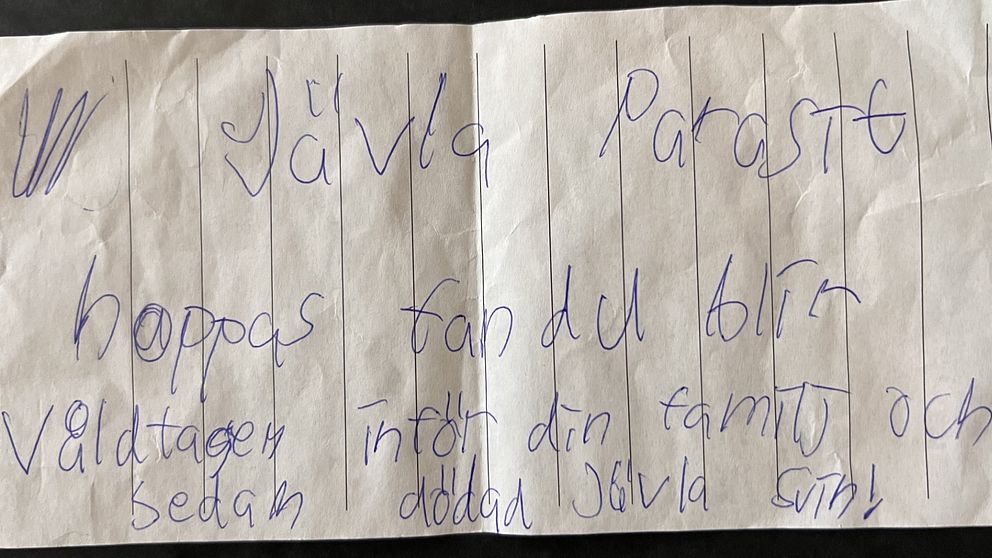 Jävla Parasit
hoppas fan du blir
våldtagen inför din familj och
sedan dödad Jävla svin!